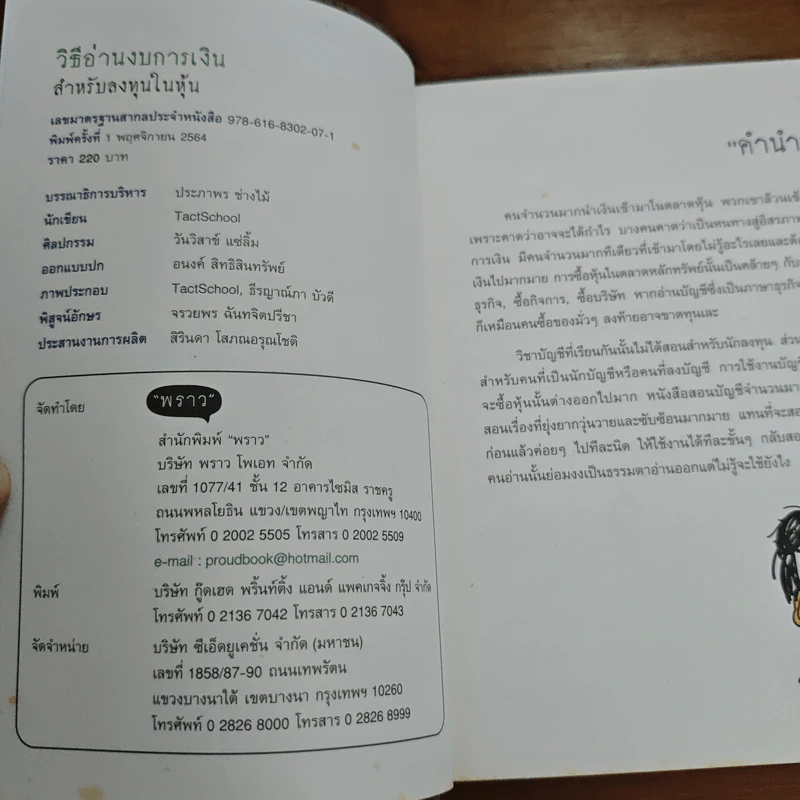 วิธีอ่านงบการเงิน
สำหรับลงทุนในหุ้น
เลขมาตรฐานสากลประจำหนังสือ 978-616-8302-07-1
พิมพ์ครั้งที่ 1 พฤศจิกายน 2564
ราคา 220 บาท
บรรณาธิการบริหาร ประภาพร ช่างไม้
นักเขียน TactSchool
ศิลปกรรม วันวิสาข์ แซ่ลิ้ม
ออกแบบปก อนงค์ สิทธิสินทรัพย์
ภาพประกอบ TactSchool, ธีรญาณ์ภา บัวดี
พิสูจน์อักษร จรวยพร ฉันทจิตปรีชา
ประสานงานการผลิต สิรินดา โสภณอรุณโชติ
จัดทำโดย "พราว"
สำนักพิมพ์ "พราว"
บริษัท พราว โพเอท จำกัด
เลขที่ 1077/41 ชั้น 12 อาคารไซมิส ราชครู
ถนนพหลโยธิน แขวง/เขตพญาไท กรุงเทพฯ 10400
โทรศัพท์ 0 2002 5505 โทรสาร 0 2002 5509
e-mail : proudbook@hotmail.com
พิมพ์ บริษัท กู๊ดเฮด พริ้นท์ติ้ง แอนด์ แพคเกจจิ้ง กรุ๊ป จำกัด
โทรศัพท์ 0 2136 7042 โทรสาร 0 2136 7043
จัดจำหน่าย บริษัท ซีเอ็ดยูเคชั่น จำกัด (มหาชน)
เลขที่ 1858/87-90 ถนนเทพรัตน
แขวงบางนาใต้ เขตบางนา กรุงเทพฯ 10260
โทรศัพท์ 0 2826 8000 โทรสาร 0 2826 8999
"คำนำ
คนจำนวนมากนำเงินเข้ามาในตลาดหุ้น พวกเขาล้วนเข้
เพราะคาดว่าอาจจะได้กำไร บางคนคาดว่าเป็นหนทางสู่อิสรภาพ
การเงิน มีคนจำนวนมากทีเดียวที่เข้ามาโดยไม่รู้อะไรเลยและต้อ
เงินไปมากมาย การซื้อหุ้นในตลาดหลักทรัพย์นั้นเป็นคล้ายๆ กับ
ธุรกิจ, ซื้อกิจการ, ซื้อบริษัท หากอ่านบัญชีซึ่งเป็นภาษาธุรกิจ
ก็เหมือนคนซื้อของมั่วๆ ลงท้ายอาจขาดทุนและ
วิชาบัญชีที่เรียนกันนั้นไม่ได้สอนสำหรับนักลงทุน ส่วน
สำหรับคนที่เป็นนักบัญชีหรือคนที่ลงบัญชี การใช้งานบัญ
จะซื้อหุ้นนั้นต่างออกไปมาก หนังสือสอนบัญชีจำนวนมา
สอนเรื่องที่ยุ่งยากวุ่นวายและซับซ้อนมากมาย แทนที่จะสอ
ก่อนแล้วค่อยๆ ไปทีละนิด ให้ใช้งานได้ทีละขั้นๆ กลับสอ
คนอ่านนั้นย่อมงงเป็นธรรมดาอ่านออกแต่ไม่รู้จะใช้ยังไง